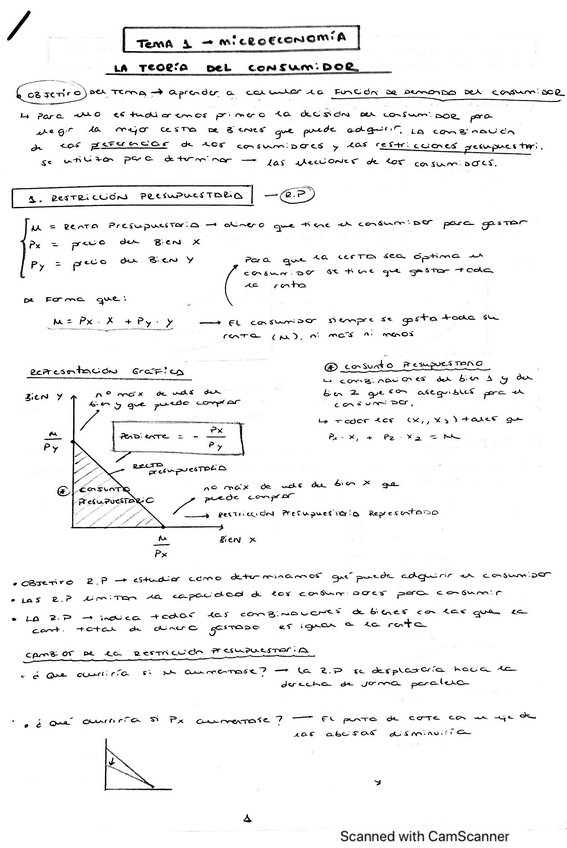 TEMA 1 → MICROECONOMÍA
LA TEORÍA DEL CONSUMIDOR
• OBJETIVO DEL TEMA → aprender a calcular la FUNCIÓN DE DEMANDA DEL CONSUMIDOR
↳ Para ello estudiaremos primero la decisión del consumidor para
elegir la mejor cesta de bienes que puede adquirir. La combinación
de las preferencias de los consumidores y las restricciones presupuestari.
se utilizan para determinar → las elecciones de los consumidores.
1. RESTRICCIÓN PRESUPUESTARIA → R.P
M = Renta Presupuestaria → dinero que tiene el consumidor para gastar
Px = precio del Bien X
Py = precio del Bien Y
Para que la cesta sea óptima el
consumidor se tiene que gastar toda
la renta
De forma que:
M = Px · X + Py · Y → El consumidor siempre se gasta toda su
renta (M), ni más ni menos
REPRESENTACIÓN GRÁFICA
Bien Y
nº máx de uds del
bien y que puede comprar
M
Py
Pendiente = - Px
Py
RECTA
PRESUPUESTARIA
⊛ CONJUNTO
PRESUPUESTARIO
nº máx de uds del bien X que
puede comprar
→ RESTRICCIÓN PRESUPUESTARIA REPRESENTADA
M
Px
Bien X
⊛ CONJUNTO PRESUPUESTARIO
↳ combinaciones del bien 1 y del
bien 2 que son asequibles para el
consumidor.
↳ Todos los (X₁, X₂) tales que
P₁ · X₁ + P₂ · X₂ = M
• OBJETIVO R.P → estudiar cómo determinamos qué puede adquirir el consumidor
• LAS R.P limitan la capacidad de los consumidores para consumir
• LA R.P → indica todas las combinaciones de bienes con las que la
cant. total de dinero gastado es igual a la renta
CAMBIOS DE LA RESTRICCIÓN PRESUPUESTARIA
• ¿Que ocurriría si M aumentase? → La R.P se desplazaría hacia la
derecha de forma paralela
• ¿Qué ocurriría si Px aumentase? → El punto de corte con el eje de
las abcisas disminuiría
1
Scanned with CamScanner